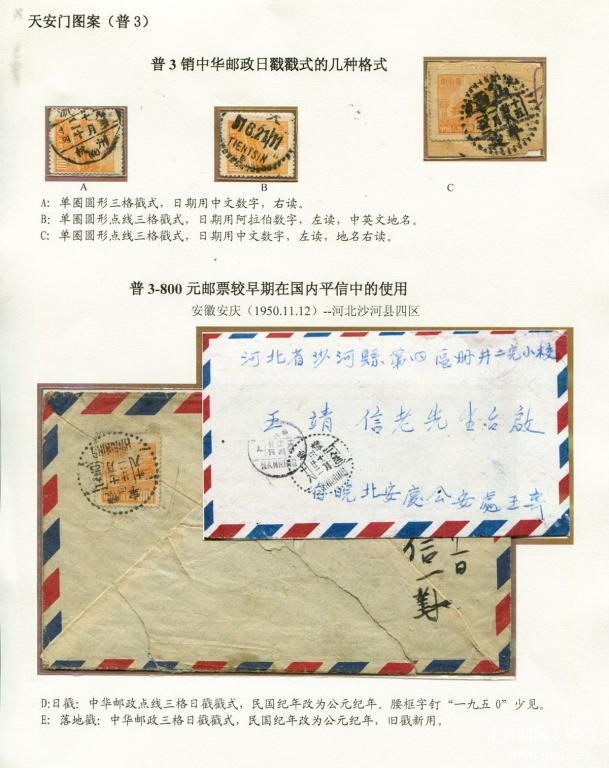 天安门图案（普3）
普3销中华邮政日戳戳式的几种格式
TIENTSIN
A
B
C
A：单圈圆形三格戳式，日期用中文数字，右读。
B：单圈圆形点线三格戳式，日期用阿拉伯数字，左读，中英文地名。
C：单圈圆形点线三格戳式，日期用中文数字，左读，地名右读。
普3-800元邮票较早期在国内平信中的使用
安徽安庆（1950.11.12）--河北沙河县四区
河北省沙河縣第四區册井二完小校
王靖信老先生台啟
安慶公安處王
信一對
D:日戳：中华邮政点线三格日戳戳式，民国纪年改为公元纪年。腰框字钉“一九五0”少见。
E：落地戳：中华邮政三格日戳戳式，民国纪年改为公元纪年，旧戳新用。